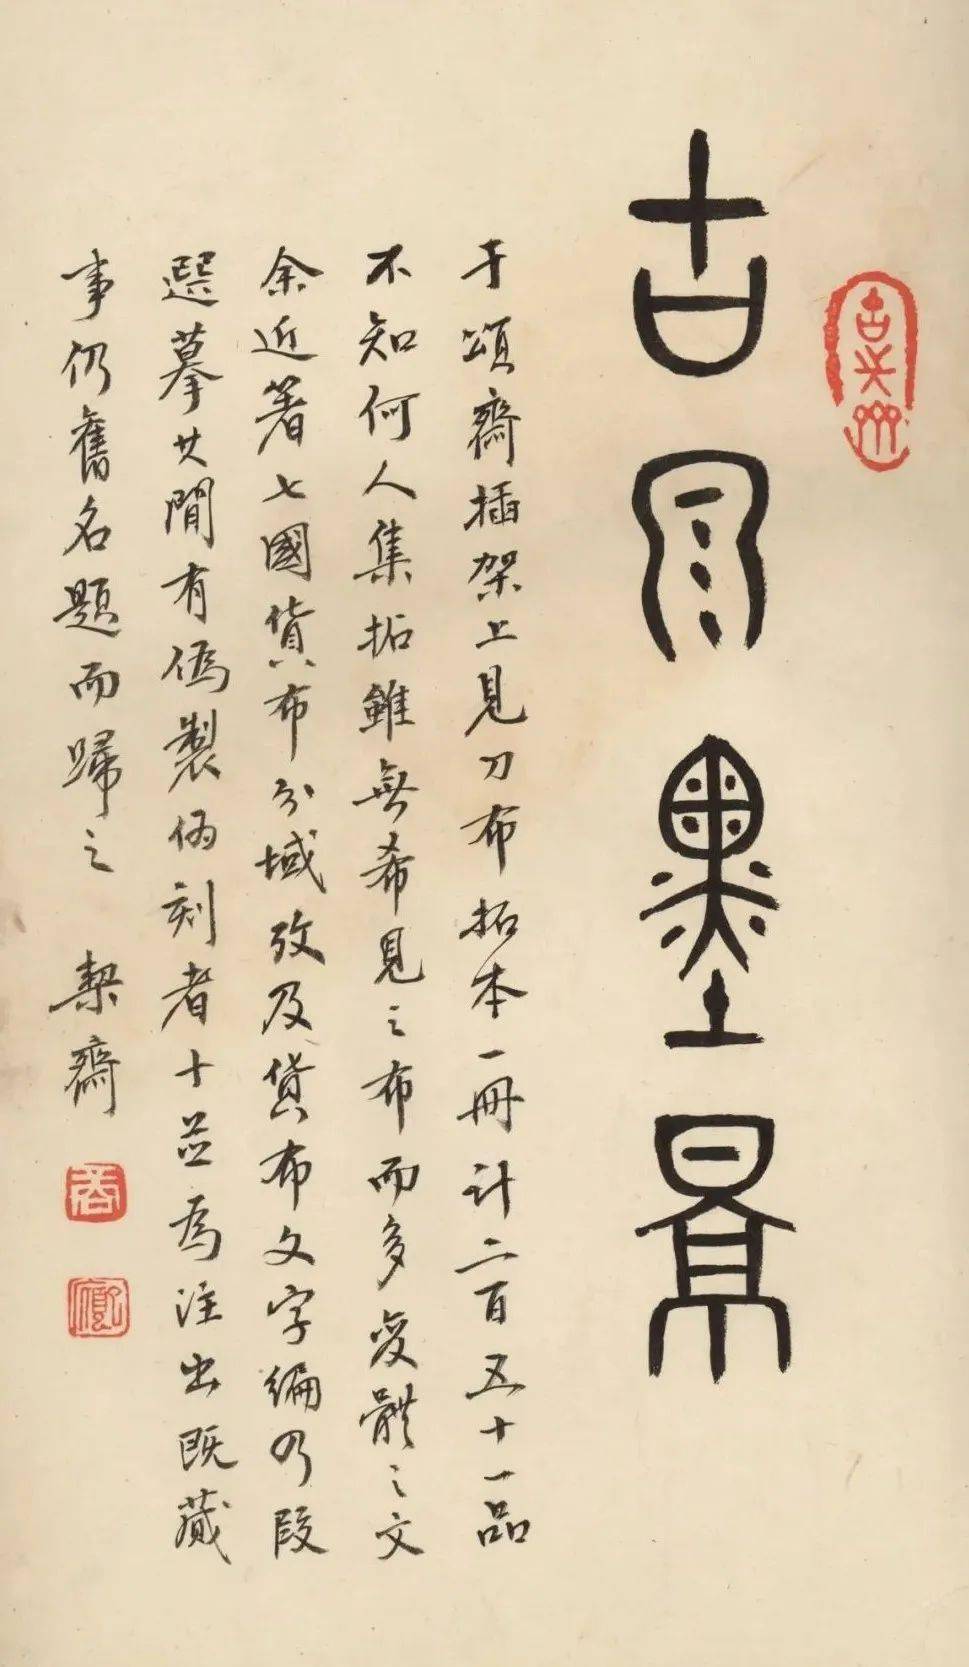 古泉墨景
于頌齋插架上見刀布拓本一冊計二百五十一品
不知何人集拓雖無希見之布而多變體之文
余近箸七國貨布分域攷及貨布文字編乃叚
選摹其閒有偽製偽刻者十並為注出既蕆
事仍舊名題而歸之 契齋